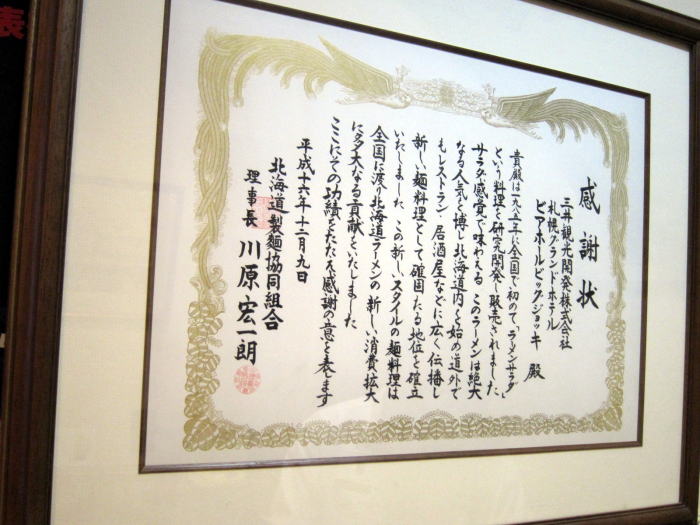 感謝状
三井観光開発株式会社
札幌グランドホテル
ビアホールビッグジョッキ 殿
貴殿は一九八五年に全国で初めて、「ラーメンサラダ」
という料理を研究開発し販売されました
サラダ感覚で味わえる このラーメンは絶大
なる人気を博し、北海道内を始め道外で
もレストラン・居酒屋などに広く伝播し
新しい麺料理として確固たる地位を確立
いたしました この新しいスタイルの麺料理は
全国に渡り北海道ラーメンの新しい消費拡大
に多大なる貢献をいたしました
ここにその功績をたたえ感謝の意を表します
平成十六年十二月九日
北海道製麺協同組合
理事長 川原宏一朗
表